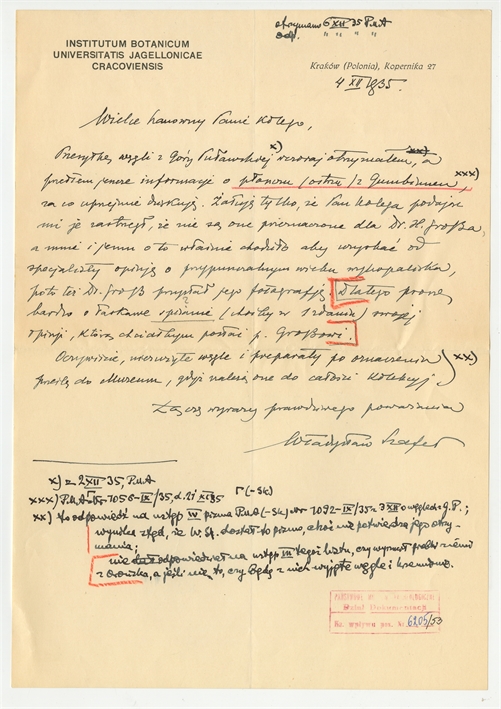 otrzymano 6 XII 35 P.u.A
odp. " " " "
INSTITUTUM BOTANICUM
UNIVERSITATIS JAGELLONICAE
CRACOVIENSIS
Kraków (Polonia), Kopernika 27
4 XII 1935.
Wielce Szanowny Panie Kolego,
x) xx)
Przesyłkę węgli z Góry Puławskiej wczoraj otrzymałem, a
przedtem jeszcze informacje o planowu (ostrzu) z Gumbinnen, xxx)
za co uprzejmie dziękuję. Żałuję tylko, że Pan Kolega
mi je zastrzegł, że nie są one przeznaczone dla Dr. H. Großa,
a mnie i jemu o to właśnie chodziło aby wyzyskać od
specjalisty opinję o przypuszczalnym wieku wykopaliska,
poto też Dr. Groß przysłał jego fotografję. Dlatego proszę
bardzo o łaskawe spisanie (choćby w 1 zdaniu) swojej
opinji, którą chciałbym posłać p. Großowi.
Oczywiście, niezużyte węgle i preparaty po oznaczeniu xx)
prześlę do Muzeum, gdyż należą one do całości kolekcyj
Łączę wyrazy prawdziwego poważania
Władysław Szafer
x) z 2 XII 35, P.u.A
xxx) P.u.A 1056-IX/35, d. 21 XI 35 (-Sk)
xx) to odpowiedź na ustęp IV pisma P.u.A (-Sk) nr 1092-IX/35 z 3 XII o węglach z G.P.;
wynika stąd, że W. Sz. dostał to pismo, choć nie potwierdza jego otrzy-
mania;
nie odpowiedział na ustęp III tegoż listu, czy wyrzucił próbki ziemi
z ..., a jeśli nie to, czy będą z nich wyjęte węgle i krzemienie.
PAŃSTWOWE MUZEUM ARCHEOLOGICZNE
Dział Dokumentacji
Nr. wpływu poz. ki 6205/53